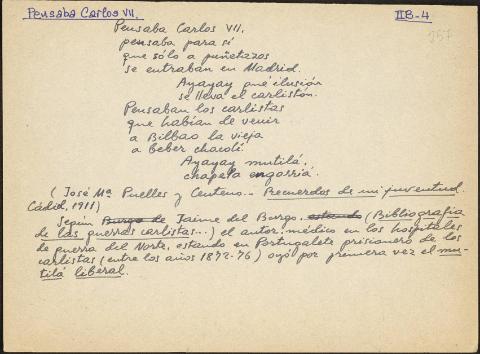 Pensaba Carlos VII.
IIB-4
157
Pensaba Carlos VII,
pensaba para sí
que sólo a puñetazos
se entraban en Madrid.
Ayayay qué ilusión
se lleva el carlistón.
Pensaban los carlistas
que habían de venir
a Bilbao la vieja
a beber chacolí
Ayayay mutilá,
chapela engorriá.
(José Mª Puelles y Centeno.- Recuerdos de mi juventud.
Cádid, 1911)
Según Burgo de Jaime del Burgo, estando (Bibliografía
de las guerras carlistas...) el autor, médico en los hospitales
de guerra del Norte, estando en Portugalete prisionero de los
carlistas (entre los años 1872-76) oyó por primera vez el mu-
tilá liberal.